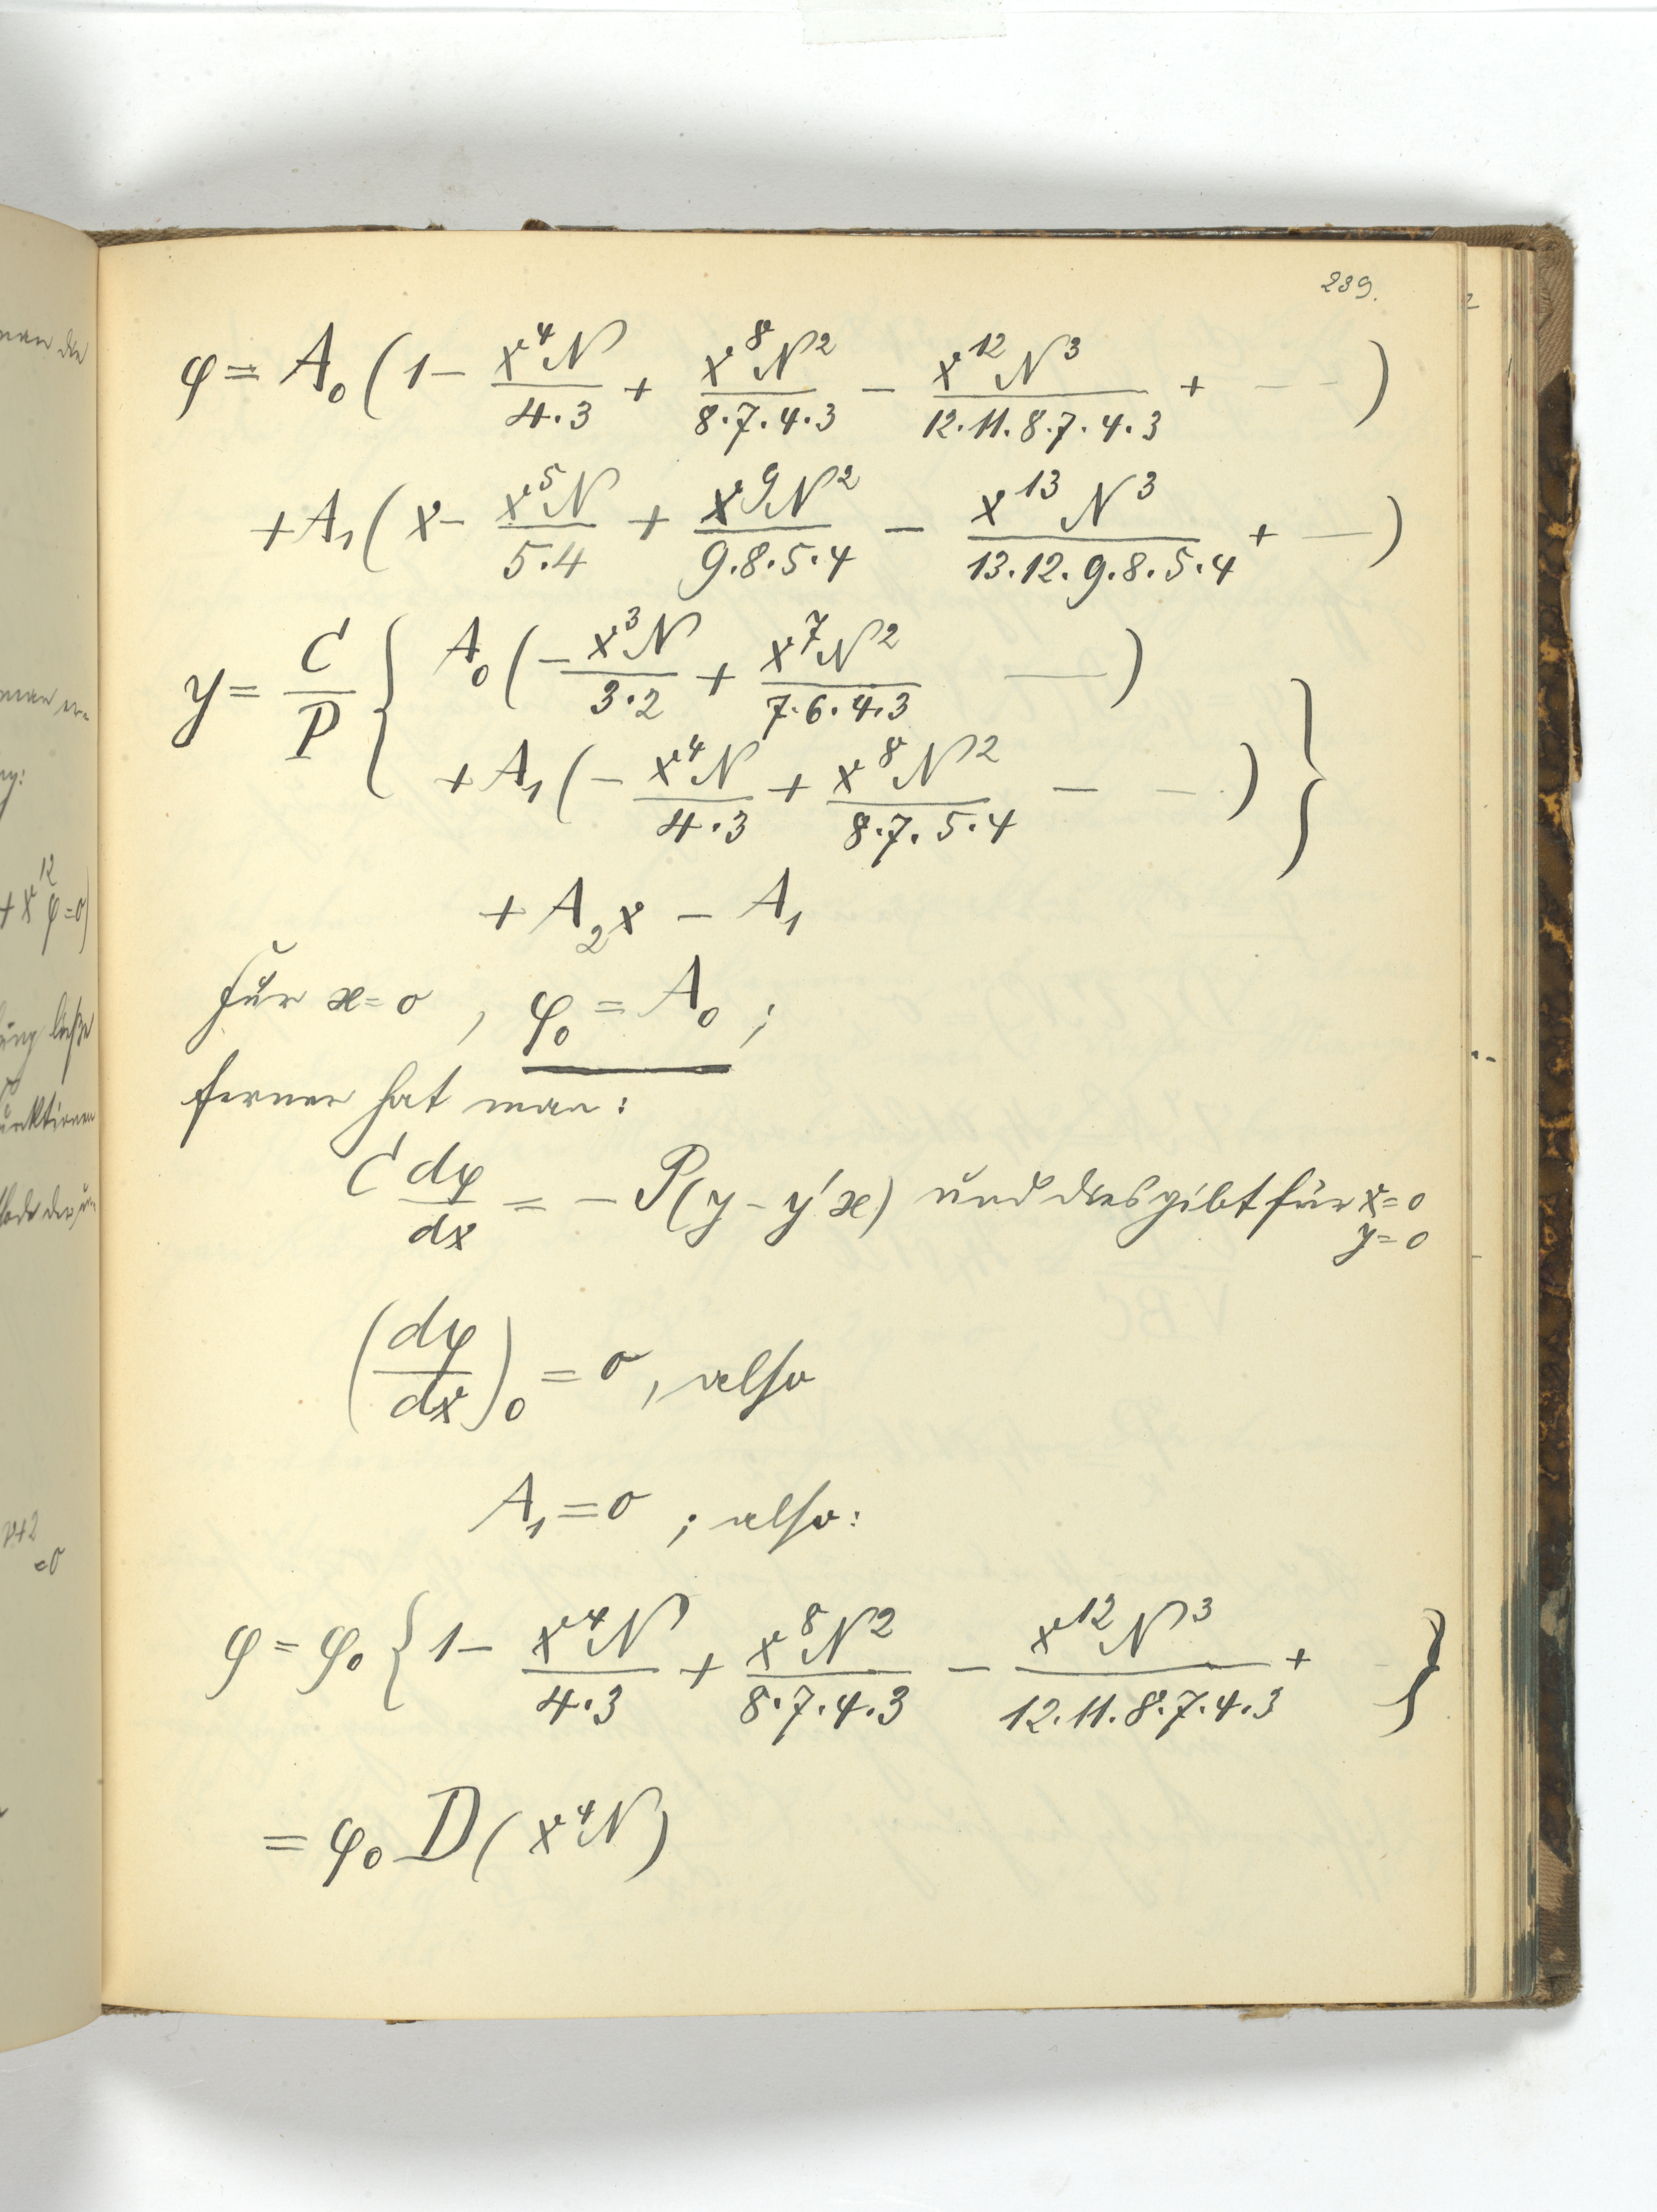 239.
φ = A₀ (1 − x⁴N/4·3 + x⁸N²/8·7·4·3 − x¹²N³/12·11·8·7·4·3 + – – )
+ A₁ (x − x⁵N/5·4 + x⁹N²/9·8·5·4 − x¹³N³/13·12·9·8·5·4 + — )
y = C/P { A₀ (− x³N/3·2 + x⁷N²/7·6·4·3 — )
+ A₁ (− x⁴N/4·3 + x⁸N²/8·7·5·4 − – · ) }
+ A₂x − A₁
für x=0 , φ₀ = A₀ ;
ferner hat man:
C dφ/dx = − P(y − y'x) und dies gibt für x=0
y=0
(dφ/dx)₀ = 0, also
A₁ = 0 ; also:
φ = φ₀ { 1 − x⁴N/4·3 + x⁸N²/8·7·4·3 − x¹²N³/12·11·8·7·4·3 + }
= φ₀ D(x⁴N)